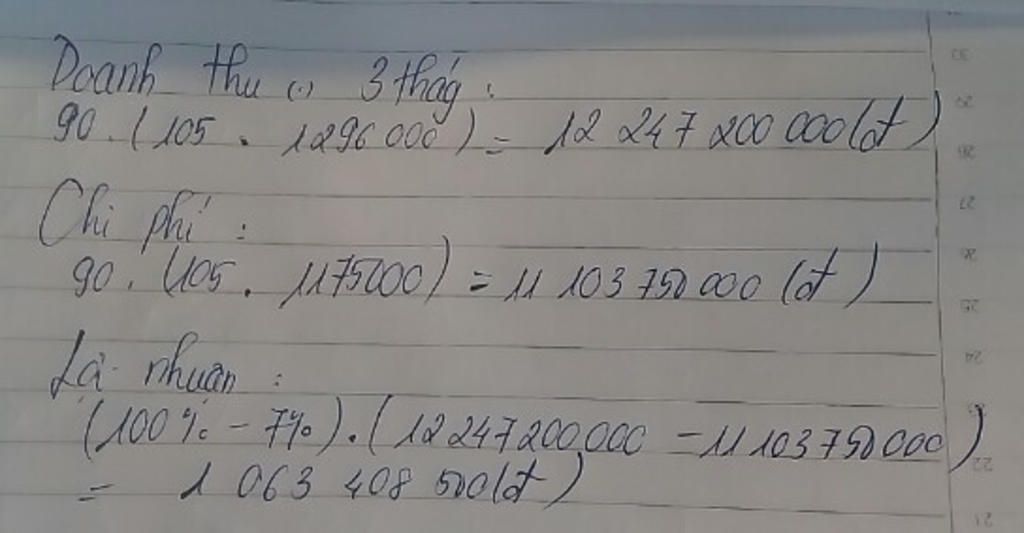 Doanh thu (.) 3 thág :
90 . (105 . 1296 000) = 12 247 200 000 (đ)
Chi phí :
90 . (105 . 1175000) = 11 103 750 000 (đ)
Lợi nhuận :
(100% - 7%) . (12 247 200 000 - 11 103 750 000)
= 1 063 408 500 (đ)
30
29
28
27
26
25
24
23
22
21